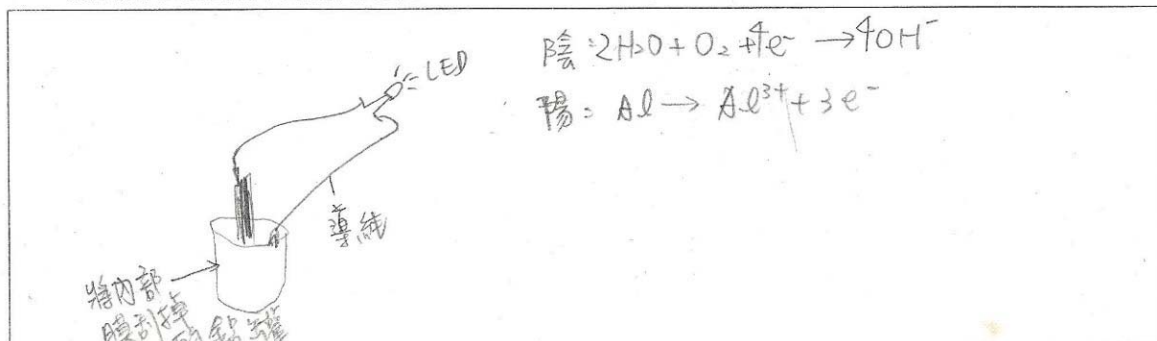 LED
陰:2H₂O + O₂ +4e⁻ → 4OH⁻
陽: Al → Al³⁺ + 3e⁻
導線
將內部
膜刮掉
鋁罐